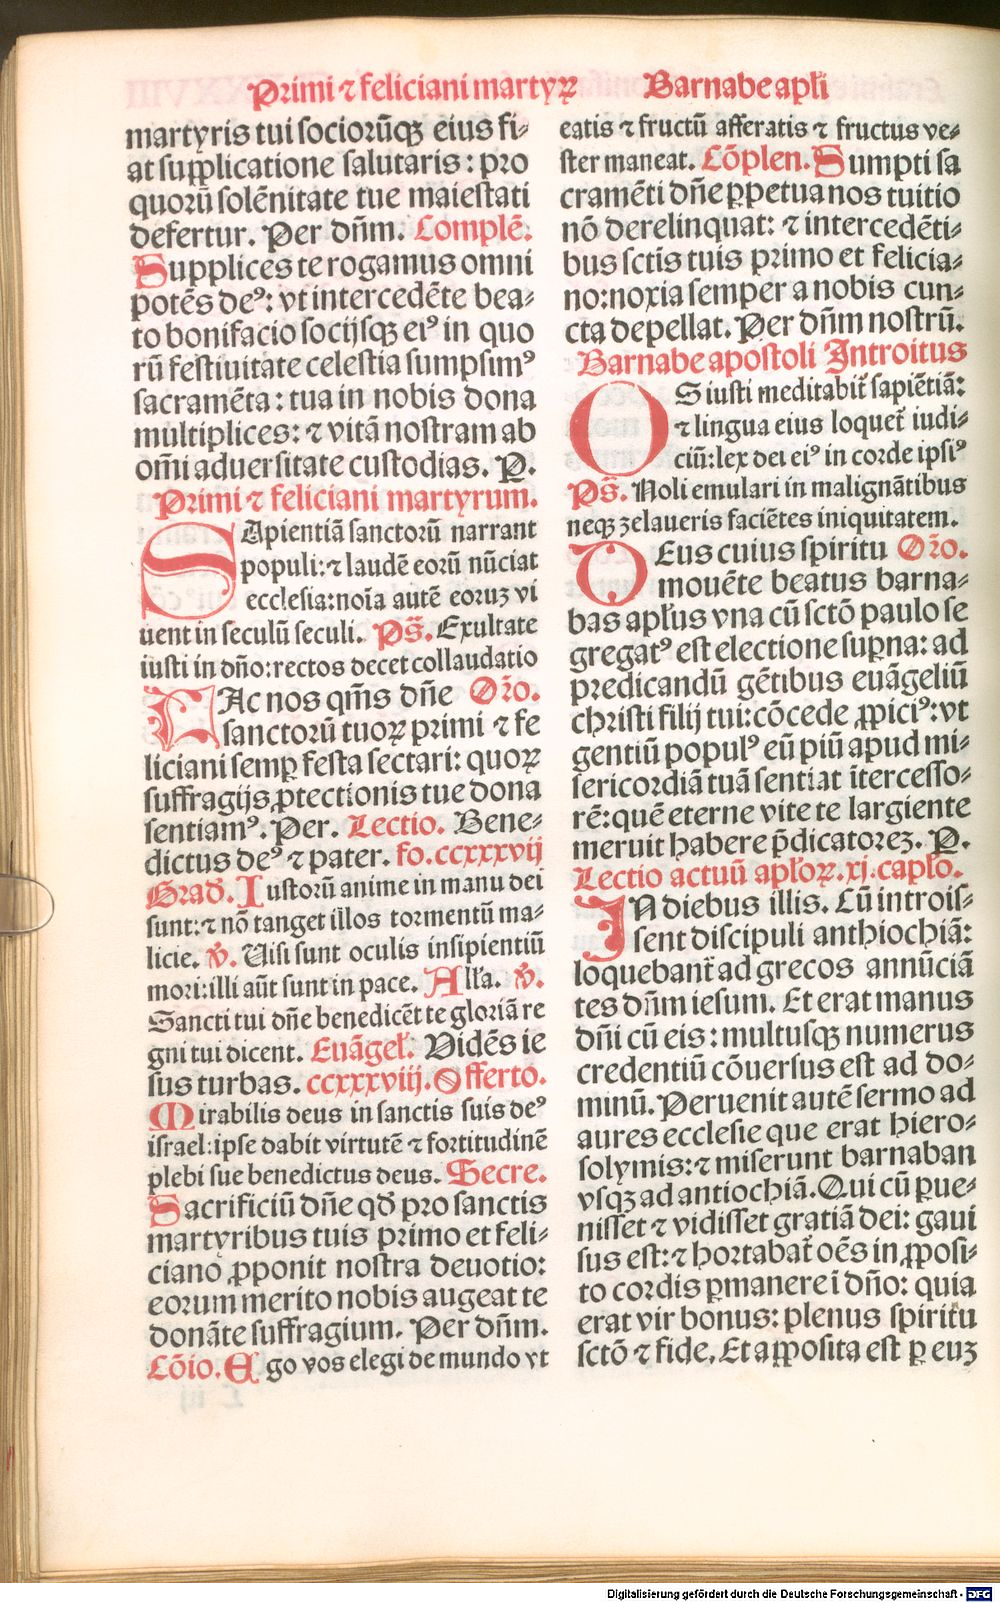 Primi ⁊ feliciani martyꝝ
Barnabe apłi
martyris tui sociorũqꝫ eius fi⸗
at supplicatione salutaris: pro
quorũ solẽnitate tue maiestati
defertur. Per dñm. Complẽ.
Supplices te rogamus omni
potẽs deꝰ: vt intercedẽte bea⸗
to bonifacio socijsqꝫ eiꝰ in quo
rũ festiuitate celestia sumpsimꝰ
sacramẽta: tua in nobis dona
multiplices: ⁊ vitã nostram ab
om̃i aduersitate custodias. P.
Primi ⁊ feliciani martyrum.
SApientiã sanctorũ narrant
populi: ⁊ laudẽ eorũ nũciat
ecclesia: noĩa autẽ eoruꝫ vi
uent in seculũ seculi. Ps̃. Exultate
iusti in dño: rectos decet collaudatio
FAc nos qm̃s dñe Oꝛõ.
sanctorũ tuoꝝ primi ⁊ fe
liciani semꝑ festa sectari: quoꝝ
suffragijs ꝓtectionis tue dona
sentiamꝰ. Per. Lectio. Bene⸗
dictus deꝰ ⁊ pater. fo. ccxxxvij
Grad̃. Iustorũ anime in manu dei
sunt: ⁊ nõ tanget illos tormentũ ma⸗
licie. ℣. Uisi sunt oculis insipientiũ
mori: illi aũt sunt in pace. Alľa. ℣.
Sancti tui dñe benedicẽt te gloriã re
gni tui dicent. Euãgeł. Vidẽs ie
sus turbas. ccxxxviij. Offerto.
Mirabilis deus in sanctis suis deꝰ
israel: ipse dabit virtutẽ ⁊ fortitudinẽ
plebi sue benedictus deus. Secre.
Sacrificiũ dñe qđ pro sanctis
martyribus tuis primo et feli⸗
ciano ꝓponit nostra deuotio:
eorum merito nobis augeat te
donãte suffragium. Per dñm.
Cõio. Ego vos elegi de mundo vt
eatis ⁊ fructũ afferatis ⁊ fructus ve⸗
ster maneat. Cõplen. Sumpti sa
cramẽti dñe ꝑpetua nos tuitio
nõ derelinquat: ⁊ intercedẽti⸗
bus sctis tuis primo et felicia⸗
no: noxia semper a nobis cun⸗
cta depellat. Per dñm nostrũ.
Barnabe apostoli Introitus
OS iusti meditabit̃ sapiẽtiã:
⁊ lingua eius loquet̃ iudi⸗
ciũ: lex dei eiꝰ in corde ipsiꝰ
Ps̃. Noli emulari in malignãtibus
neqꝫ zelaueris faciẽtes iniquitatem.
DEus cuius spiritu Oꝛõ.
mouẽte beatus barna⸗
bas apłus vna cũ sctõ paulo se
gregatꝰ est electione suꝑna: ad
predicandũ gẽtibus euãgeliũ
christi filij tui: cõcede ꝓpiciꝰ: vt
gentiũ populꝰ eũ piũ apud mi⸗
sericordiã tuã sentiat ĩtercesso⸗
rẽ: quẽ eterne vite te largiente
meruit habere p̃dicatoreꝫ. P.
Lectio actuũ apłoꝝ. xj. capło.
IN diebus illis. Cũ introis⸗
sent discipuli anthiochiã:
loquebant̃ ad grecos annũciã
tes dñm iesum. Et erat manus
dñi cũ eis: multusqꝫ numerus
credentiũ cõuersus est ad do⸗
minũ. Peruenit autẽ sermo ad
aures ecclesie que erat hiero⸗
solymis: ⁊ miserunt barnaban
vsqꝫ ad antiochiã. Qui cũ ꝑue⸗
nisset ⁊ vidisset gratiã dei: gaui
sus est: ⁊ hortabat̃ oẽs in ꝓposi⸗
to cordis ꝑmanere ĩ dño: quia
erat vir bonus: plenus spiritu
sctõ ⁊ fide, Et apposita est ꝑ euꝫ
Digitalisierung gefördert durch die Deutsche Forschungsgemeinschaft - DFG